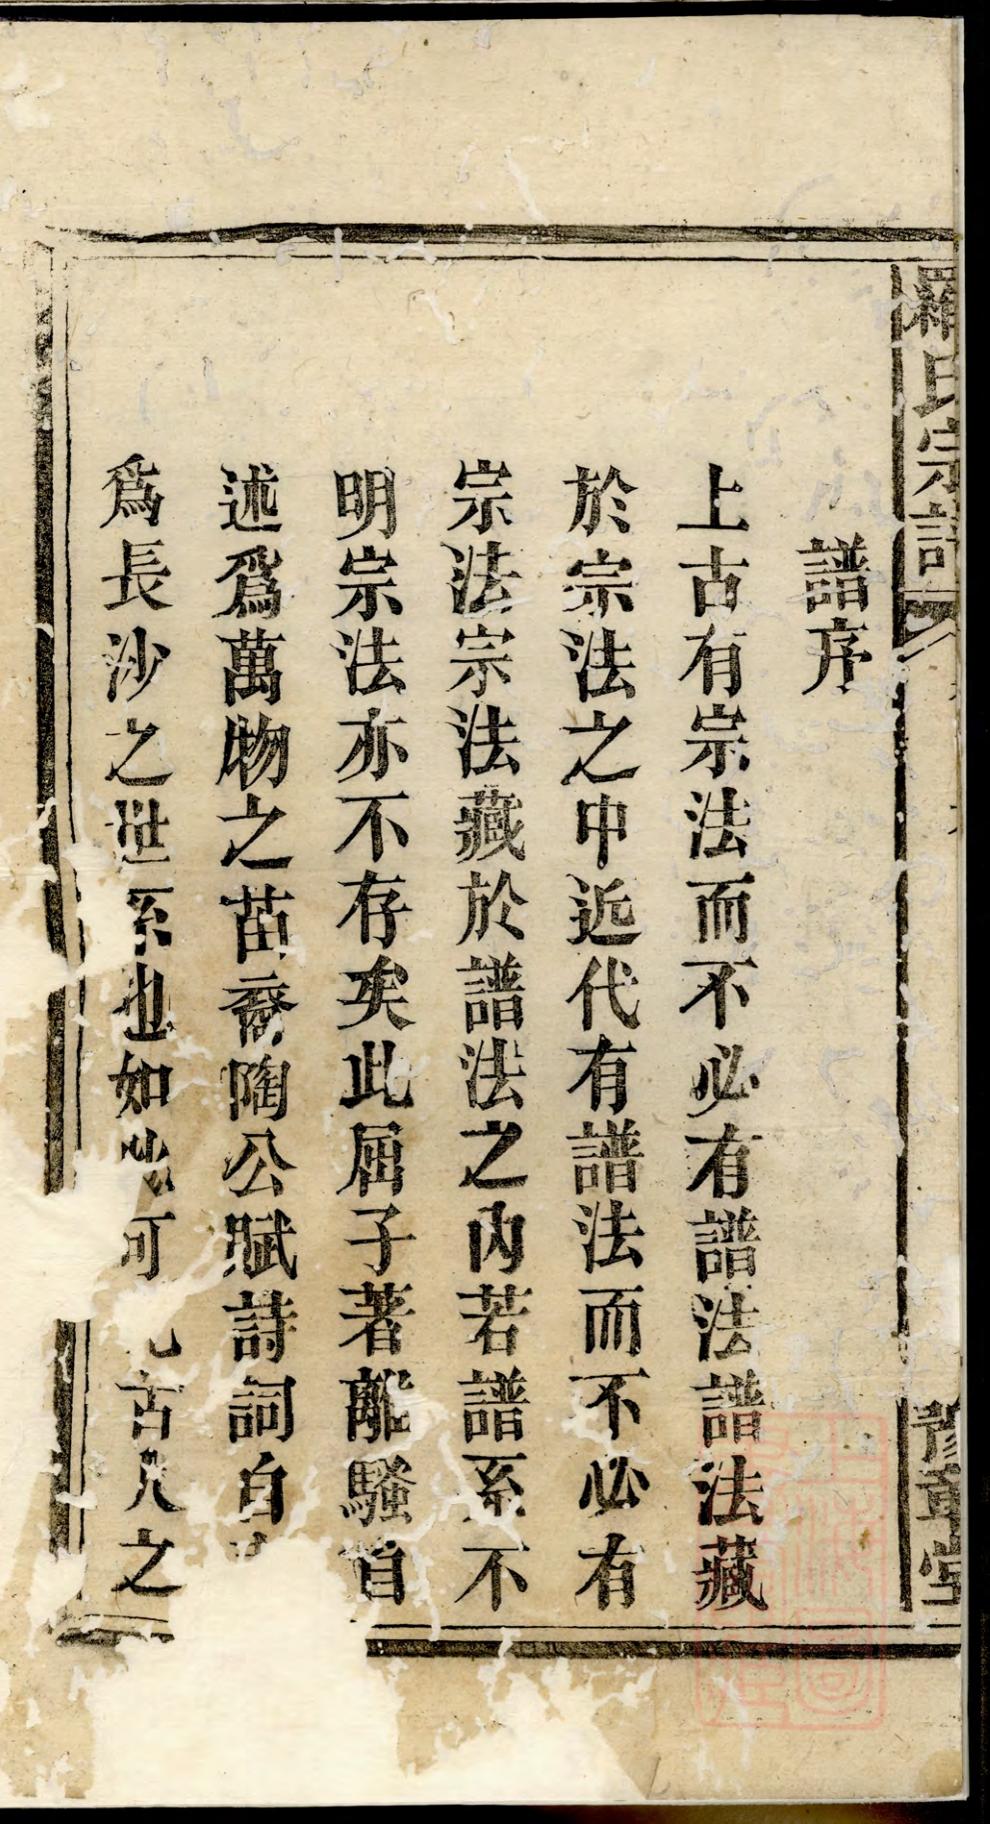 羅氏宗譜
豫章堂
譜序
上古有宗法而不必有譜法譜法藏
於宗法之中近代有譜法而不必有
宗法宗法藏於譜法之內若譜系不
明宗法亦不存矣此屈子著離騷自
述爲萬物之苗裔陶公賦詩詞自
爲長沙之世系也如此可古人之